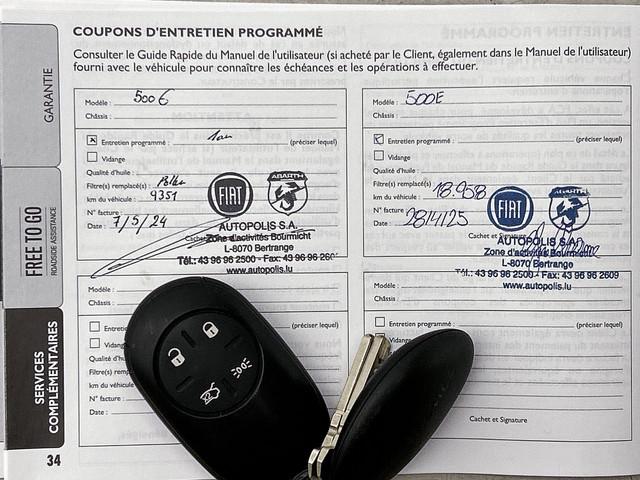 COUPONS D'ENTRETIEN PROGRAMMÉ
Consulter le Guide Rapide du Manuel de l'utilisateur (si acheté par le Client, également dans le Manuel de l'utilisateur)
fourni avec le véhicule pour connaître les échéances et les opérations à effectuer.
GARANTIE
FREE TO GO
ROADSIDE ASSISTANCE
SERVICES
COMPLÉMENTAIRES
34
Modèle : 500 E
Châssis :
Entretien programmé : 1an (préciser lequel)
Vidange
Qualité d'huile :
Filtre(s) remplacé(s) : Pollen
km du véhicule : 9351
N° facture :
Date : 7/5/24
FIAT
ABARTH
AUTOPOLIS S.A.
Zone d'activités Bourmicht
L-8070 Bertrange
Tél.: 43 96 96 2500 - Fax: 43 96 96
www.autopolis.lu
Modèle : 500E
Châssis :
Entretien programmé : (préciser lequel)
Vidange
Qualité d'huile :
Filtre(s) remplacé(s)
km du véhicule : 18.958
N° facture
Date :
Cachet et Signature
FIAT
ABARTH
AUTOPOLIS S.A.
Zone d'activités Bourmicht
L-8070 Bertrange
Tél.: 43 96 96 2500 - Fax: 43 96 96 2609
www.autopolis.lu
Modèle :
Châssis :
(préciser lequel)
Vidange
Qualité
km du véhicule
N° facture :
Date :
Modèle :
Châssis :
Entretien programmé : (préciser lequel)
Cachet et Signature